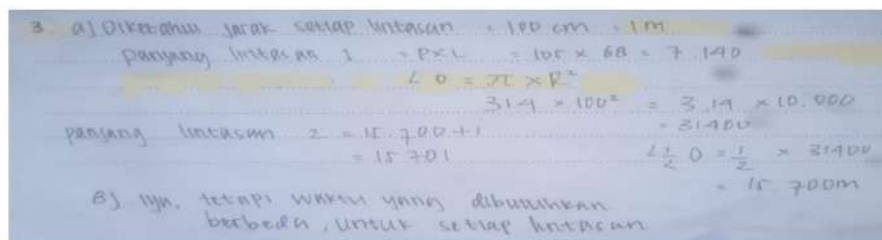 3. a) Diketahui jarak setiap lintasan = 100 cm = 1 m
panjang lintasan 1 = P × L = 105 × 68 = 7.140
L O = π × R²
314 × 100² = 3.14 × 10.000
= 31400
panjang lintasan 2 = 15.700 + 1
= 15701
L ½ O = ½ × 31400
= 15 700m
B) Iya, tetapi waktu yang dibutuhkan
berbeda, untuk setiap lintasan